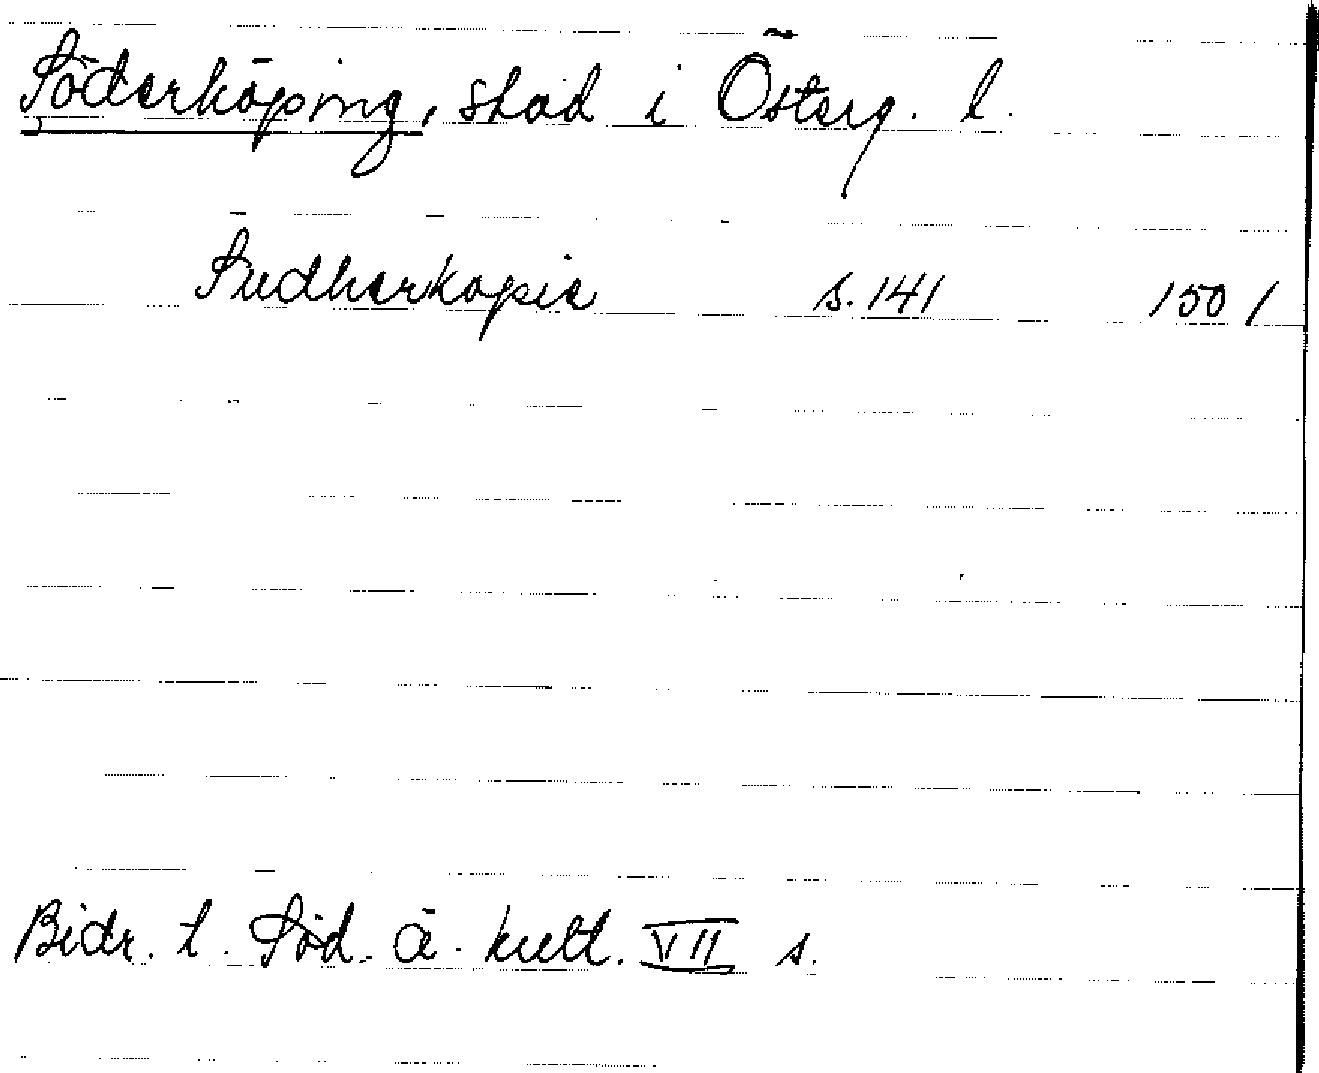 Söderköping, stad i Österg. l.
Sudherkøpie s. 141 1501
Bidr. t. Söd. ä. kult. VII s.